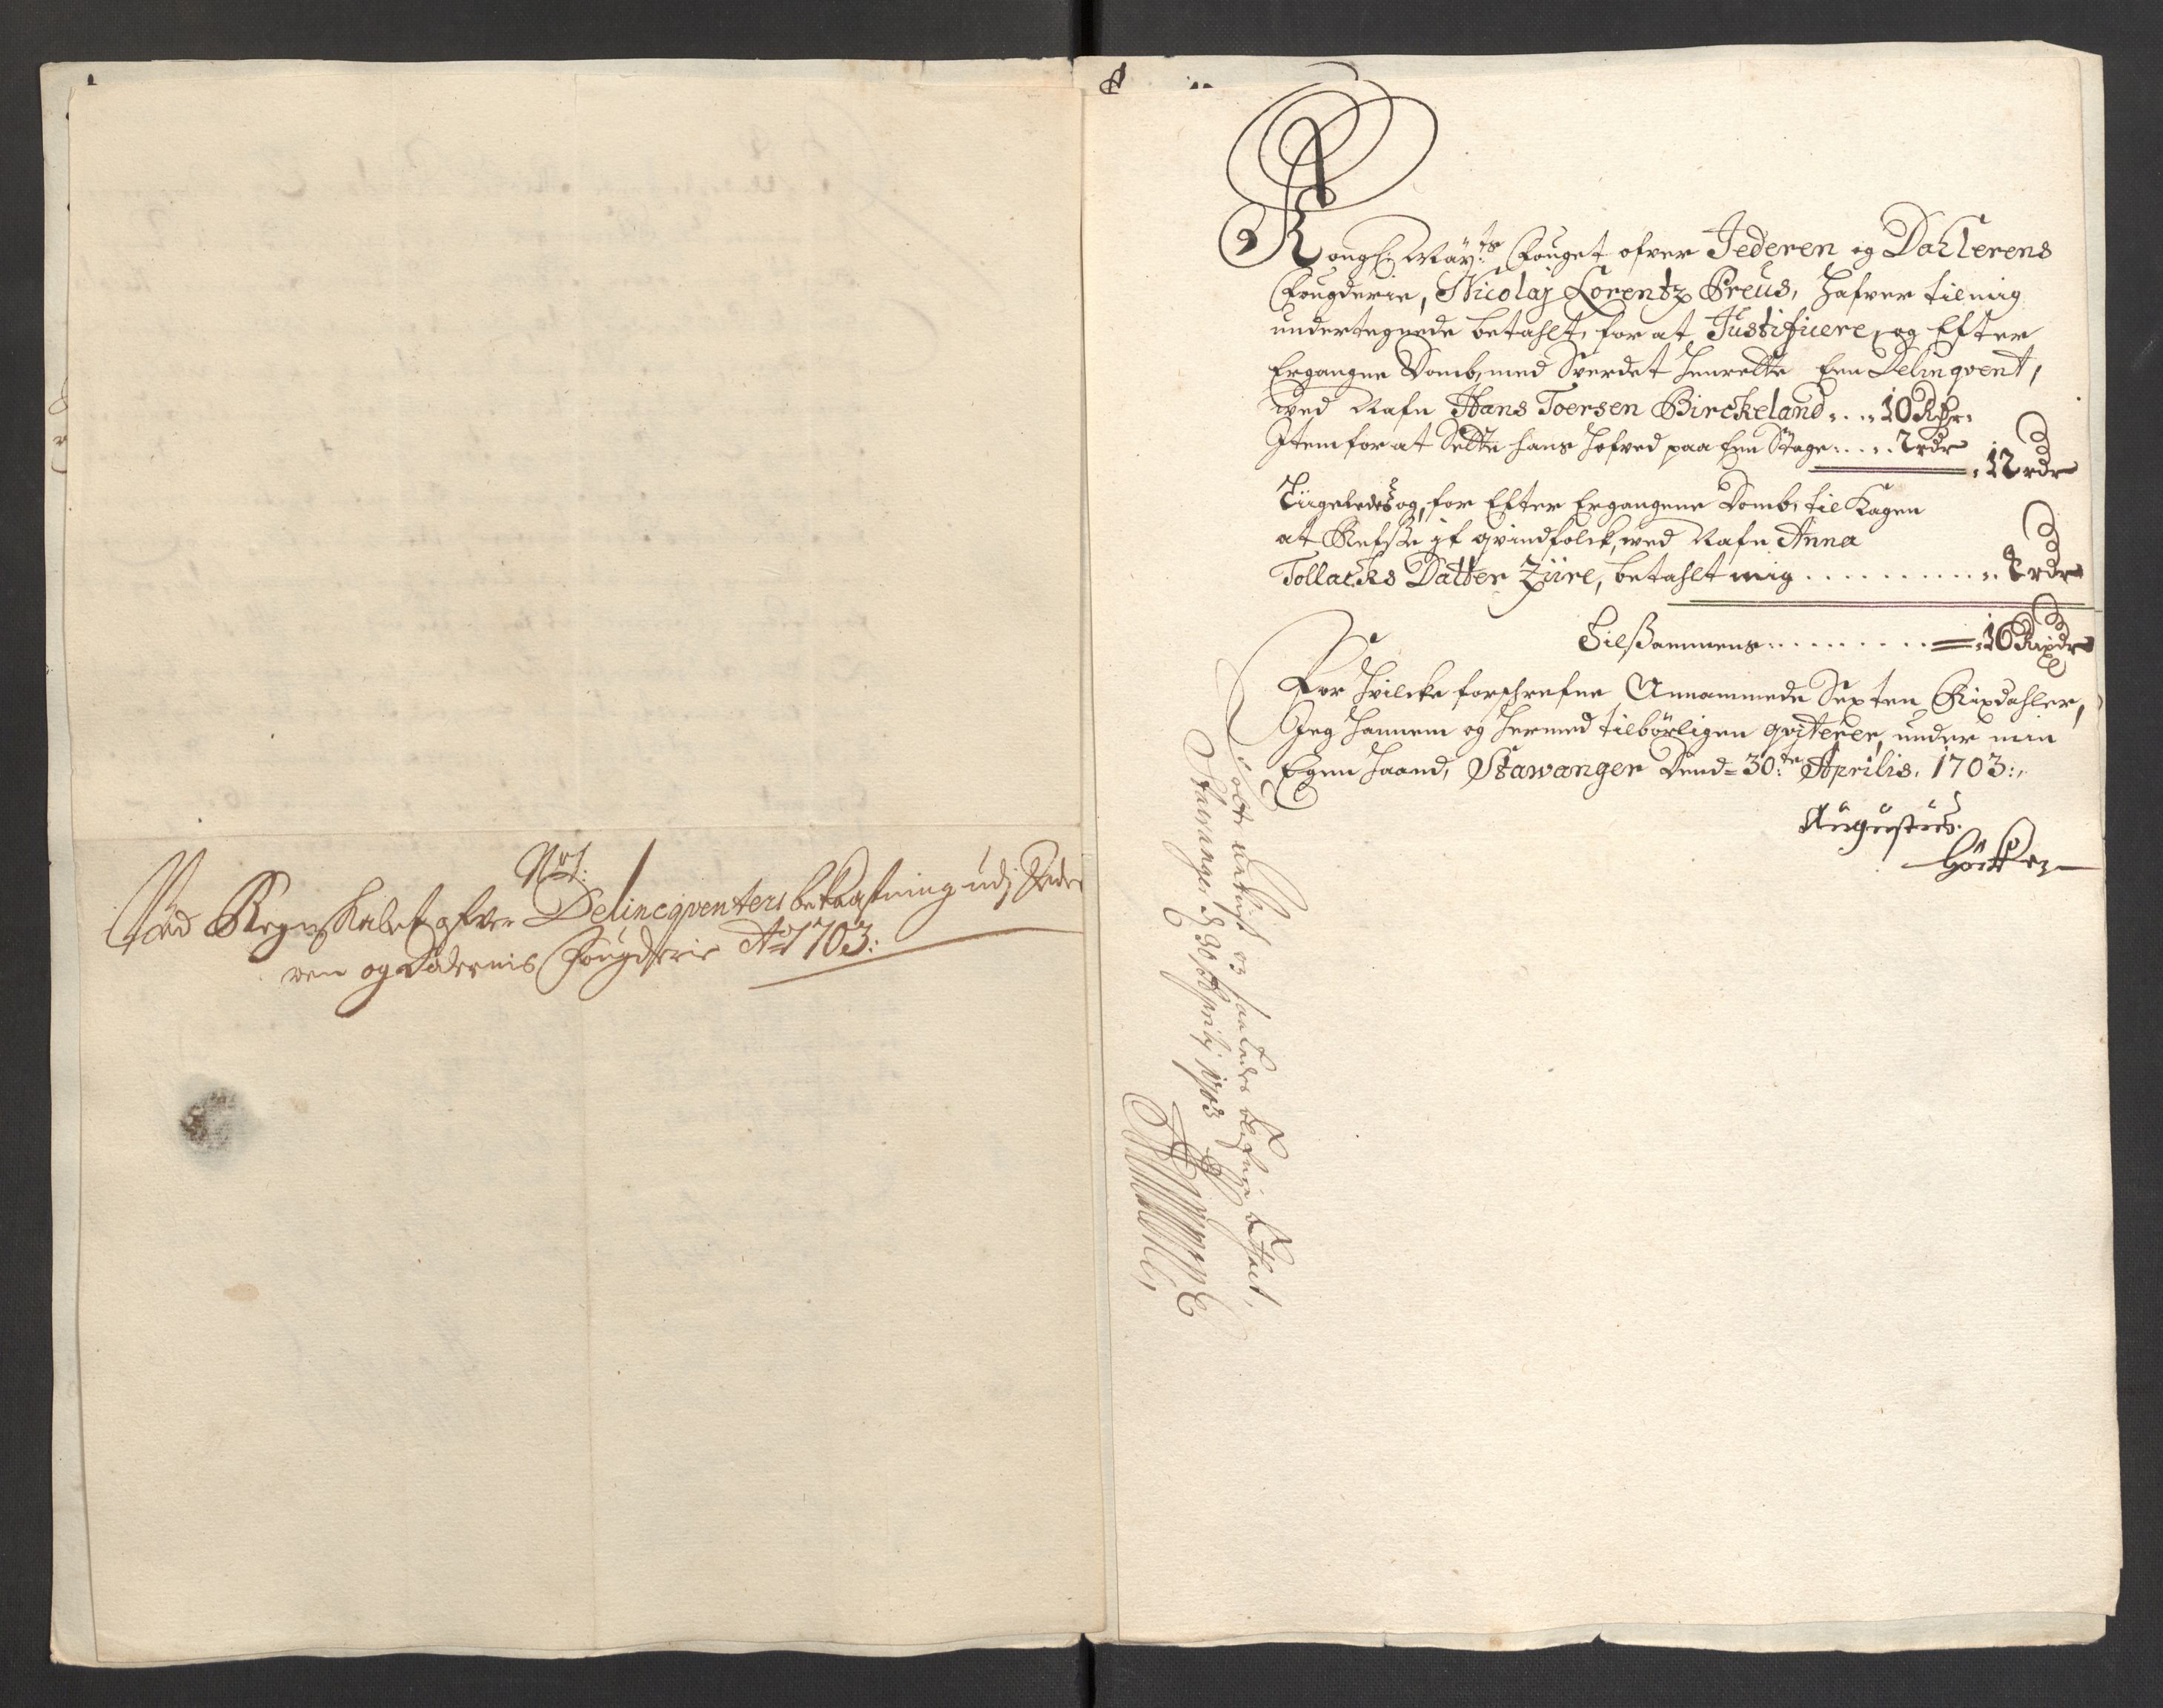 No 1.
Ved Regnskabet ofver Delincqventers bekaastning udj Jede
ren og Dalernis Fougderie Ao 1703:
Kongl: Mayts Fouget ofver Jederen og Dahlerens
Fougderie, Nicolaj Lorentz Preus, hafver til mig
undertegnede betahlt, for at Justificere, og Efter
Ergangne Domb, med Sverdet henrette Een Delinqvent,
ved Nafn Hans Toersen Birckeland . . . 10 Rdr.
Item for at Sette hans Hofved paa Een Stage . . . . 2 rdr
12 rdr
Liigeledes og, for Efter Ergangene Domb, til Kagen
at Refse it qvindfolck, ved Nafn Anna
Tollacks Datter Ziire, betahlt mig . . . . . . . . . . 4 rdr
Tilsammens . . . . . . . . = 16 Rixdr
For hvilcke forschrefne Annammede Sexten Rixdahler,
Jeg hannem og hermed tilbörligen qviterer, under min
Egen Haand, Stawanger Dend 30te Aprilis, 1703:,
Augustus
at saaledes rigtig
Stavanger d 30 Aprilij 1703